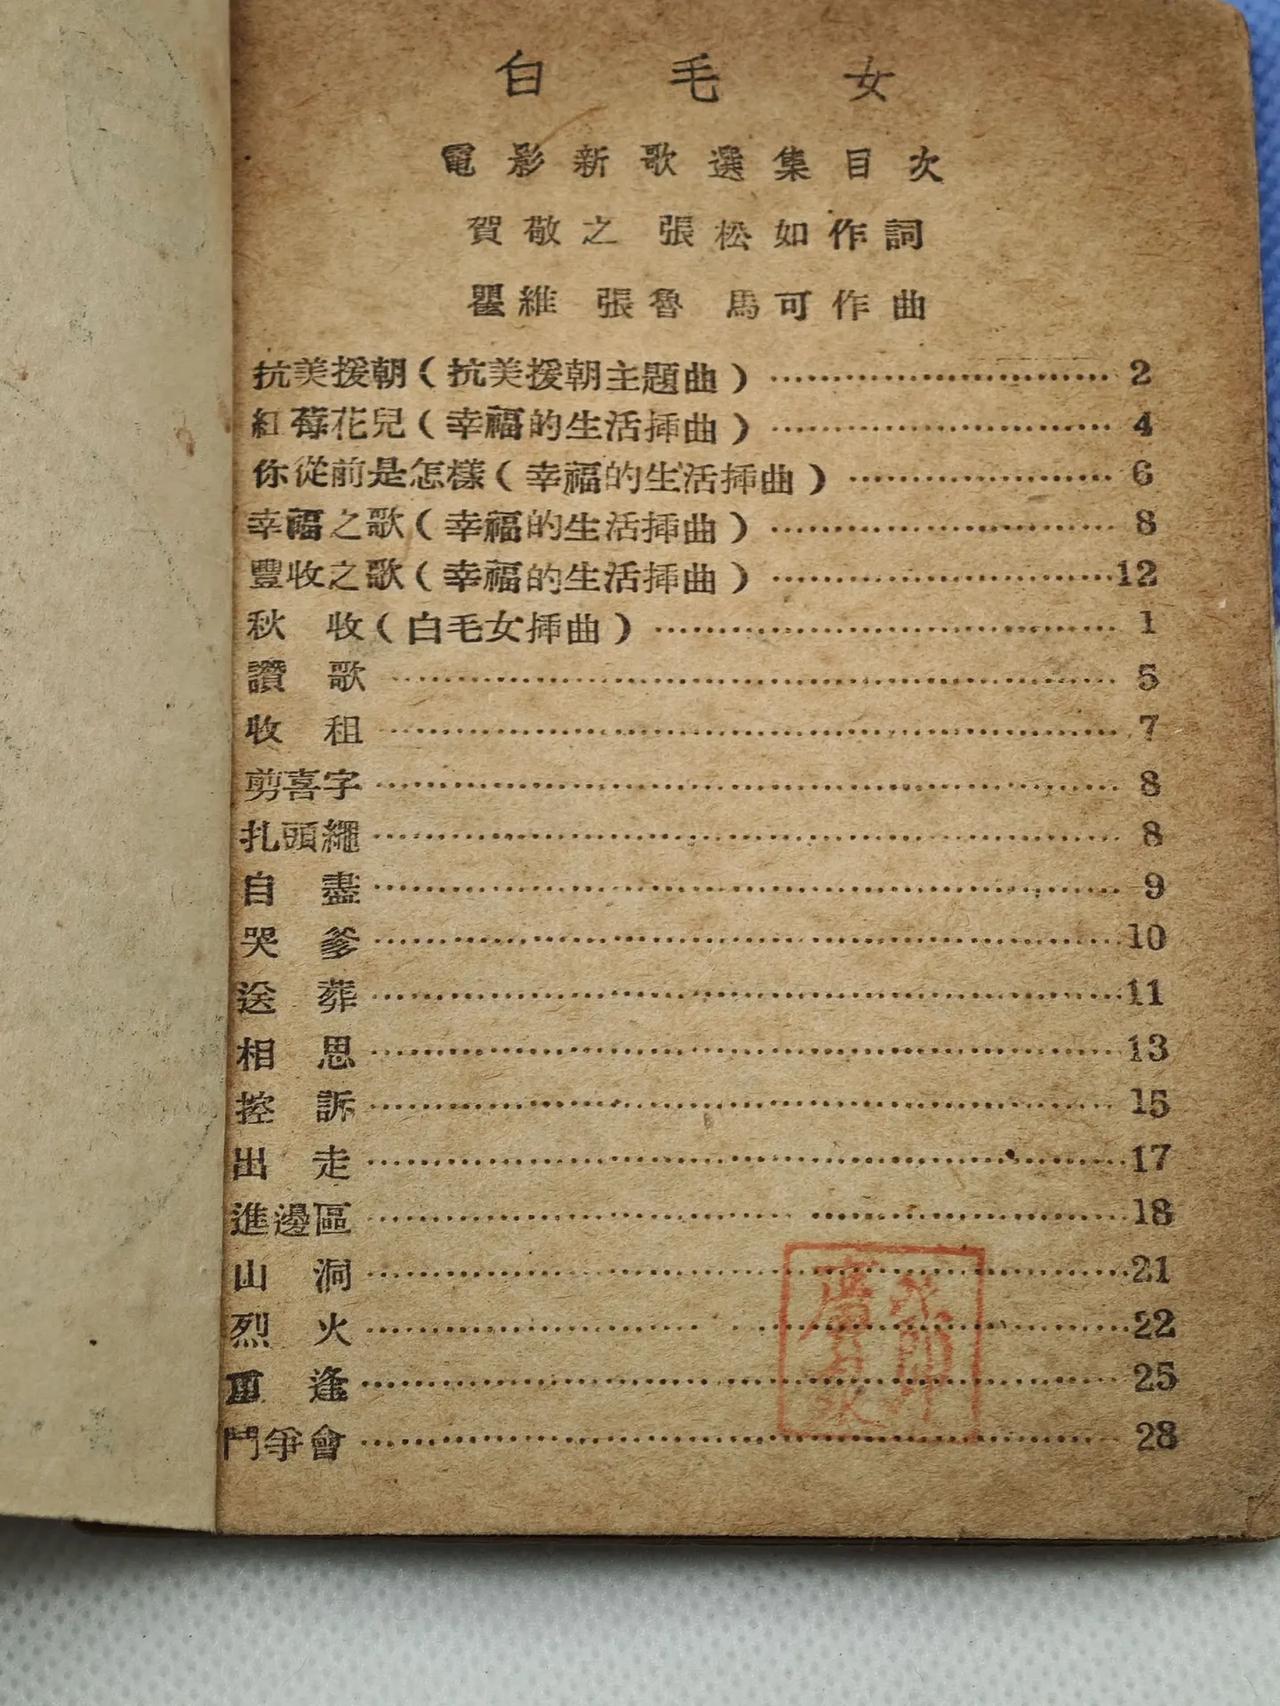 白毛女
電影新歌選集目次
賀敬之 張松如作詞
瞿維 張魯 馬可作曲
抗美援朝(抗美援朝主題曲)…………2
紅莓花兒(幸福的生活揷曲)…………4
你從前是怎樣(幸福的生活揷曲)…………6
幸福之歌(幸福的生活揷曲)…………8
豐收之歌(幸福的生活揷曲)…………12
秋 收(白毛女揷曲)…………1
讚 歌…………5
收 租…………7
剪喜字…………8
扎頭繩…………8
自 盡…………9
哭 爹…………10
送 葬…………11
相 思…………13
控 訴…………15
出 走…………17
進邊區…………18
山 洞…………21
烈 火…………22
重 逢…………25
鬥爭會…………28